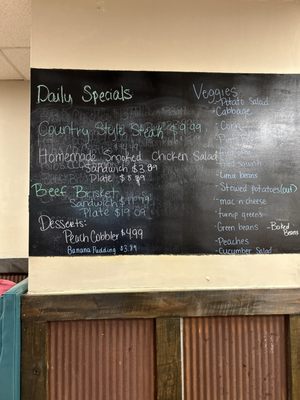 Daily Specials
Country Style Steak $9.99
Homemade Smoked Chicken Salad
Sandwich
Plate
Beef Brisket
Sandwich
Plate
Desserts:
Peach Cobbler $4.99
Banana Pudding $3.99
Veggies
Potato Salad
-Cabbage
-Corn
-Lima beans
-Stewed potatoes (out)
-mac n cheese
-turnip greens
-Green beans -Baked Beans
-Peaches
-Cucumber Salad